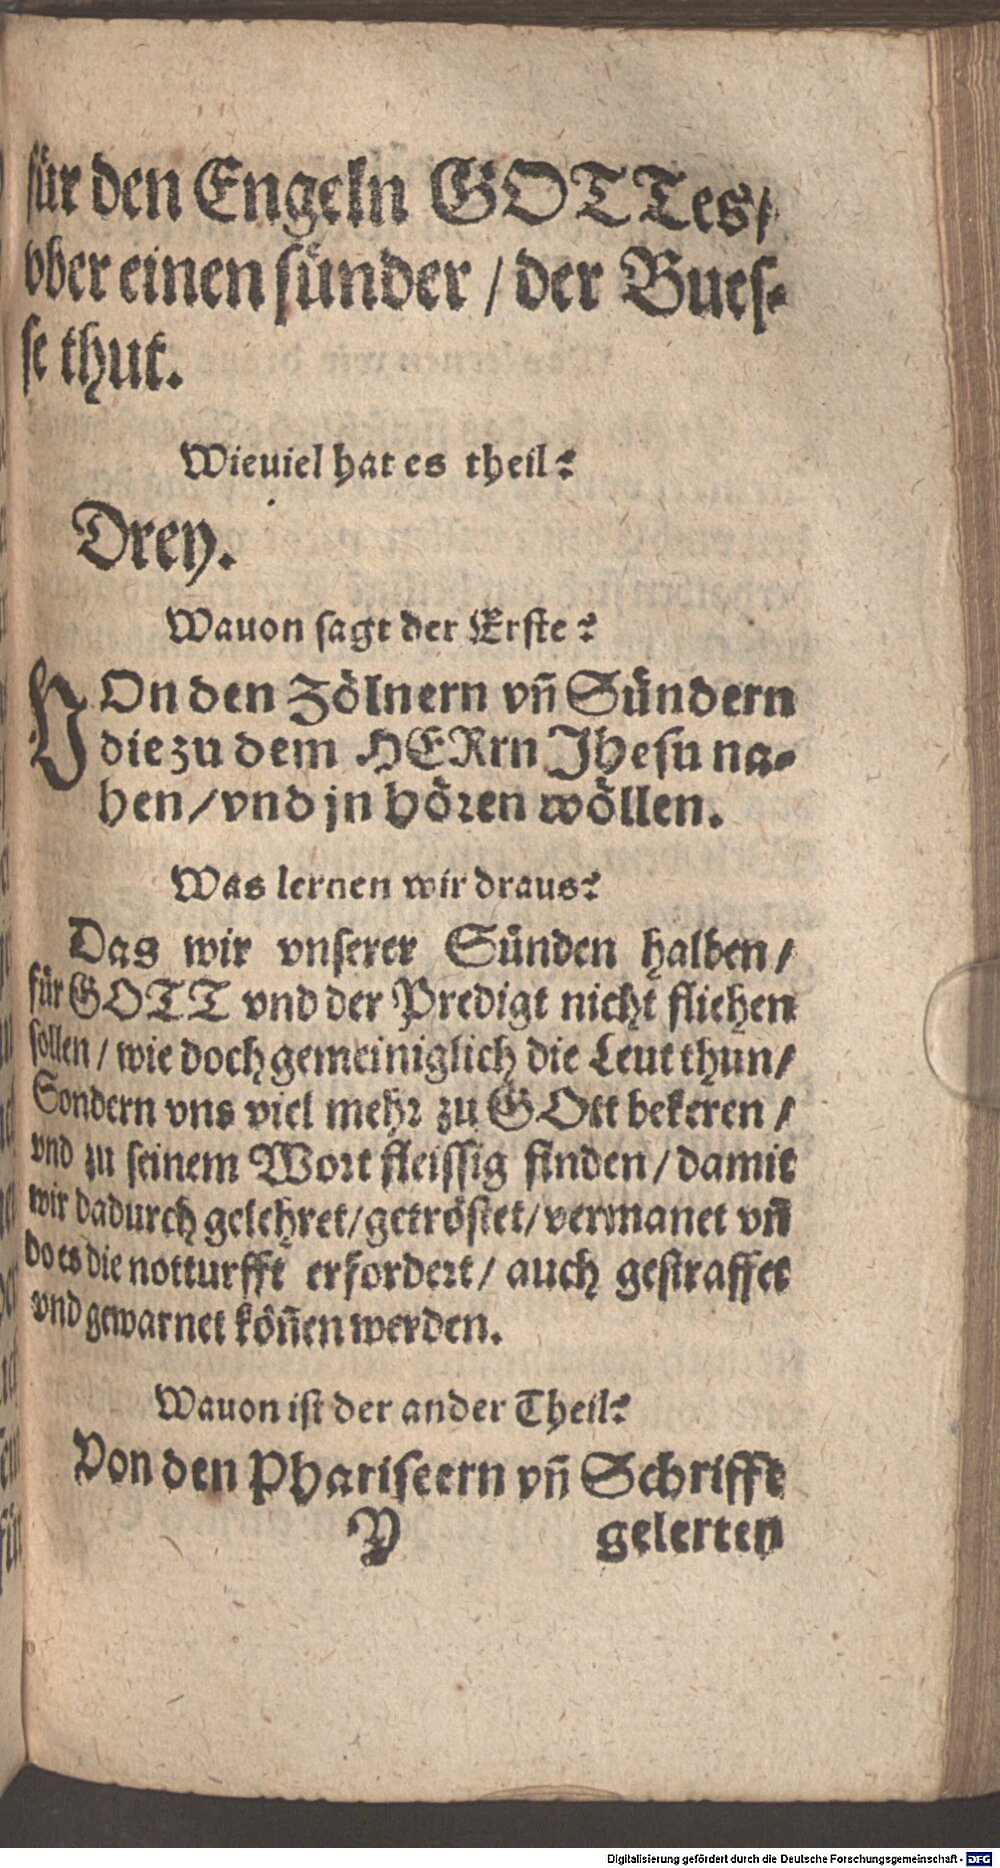 für den Engeln GOTTes/
vber einen sünder / der Bues-
se thut.
Wieuiel hat es theil?
Drey.
Wauon sagt der Erste?
VOn den Zölnern vñ Sündern
die zu dem HERrn Jhesu na-
hen/vnd jn hören wöllen.
Was lernen wir draus?
Das wir vnserer Sünden halben/
für GOTT vnd der Predigt nicht fliehen
sollen / wie doch gemeiniglich die Leut thun/
Sondern vns viel mehr zu GOtt bekeren /
vnd zu seinem Wort fleissig finden/damit
wir dadurch gelehret/getröstet/vermanet vñ
do es die notturfft erfordert/ auch gestraffet
vnd gewarnet köñen werden.
Wauon ist der ander Theil?
Von den Phariseern vñ Schrifft
Y gelerten
Digitalisierung gefördert durch die Deutsche Forschungsgemeinschaft - DFG